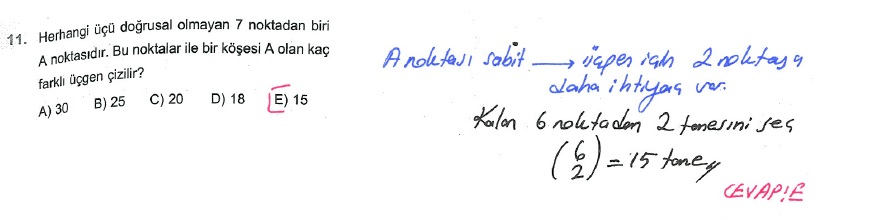 11. Herhangi üçü doğrusal olmayan 7 noktadan biri
A noktasıdır. Bu noktalar ile bir köşesi A olan kaç
farklı üçgen çizilir?
A) 30 B) 25 C) 20 D) 18 E) 15
A noktası sabit. → üçgen için 2 noktaya
daha ihtiyaç var.
Kalan 6 noktadan 2 tanesini seç
(6 2) = 15 tane
CEVAP:E